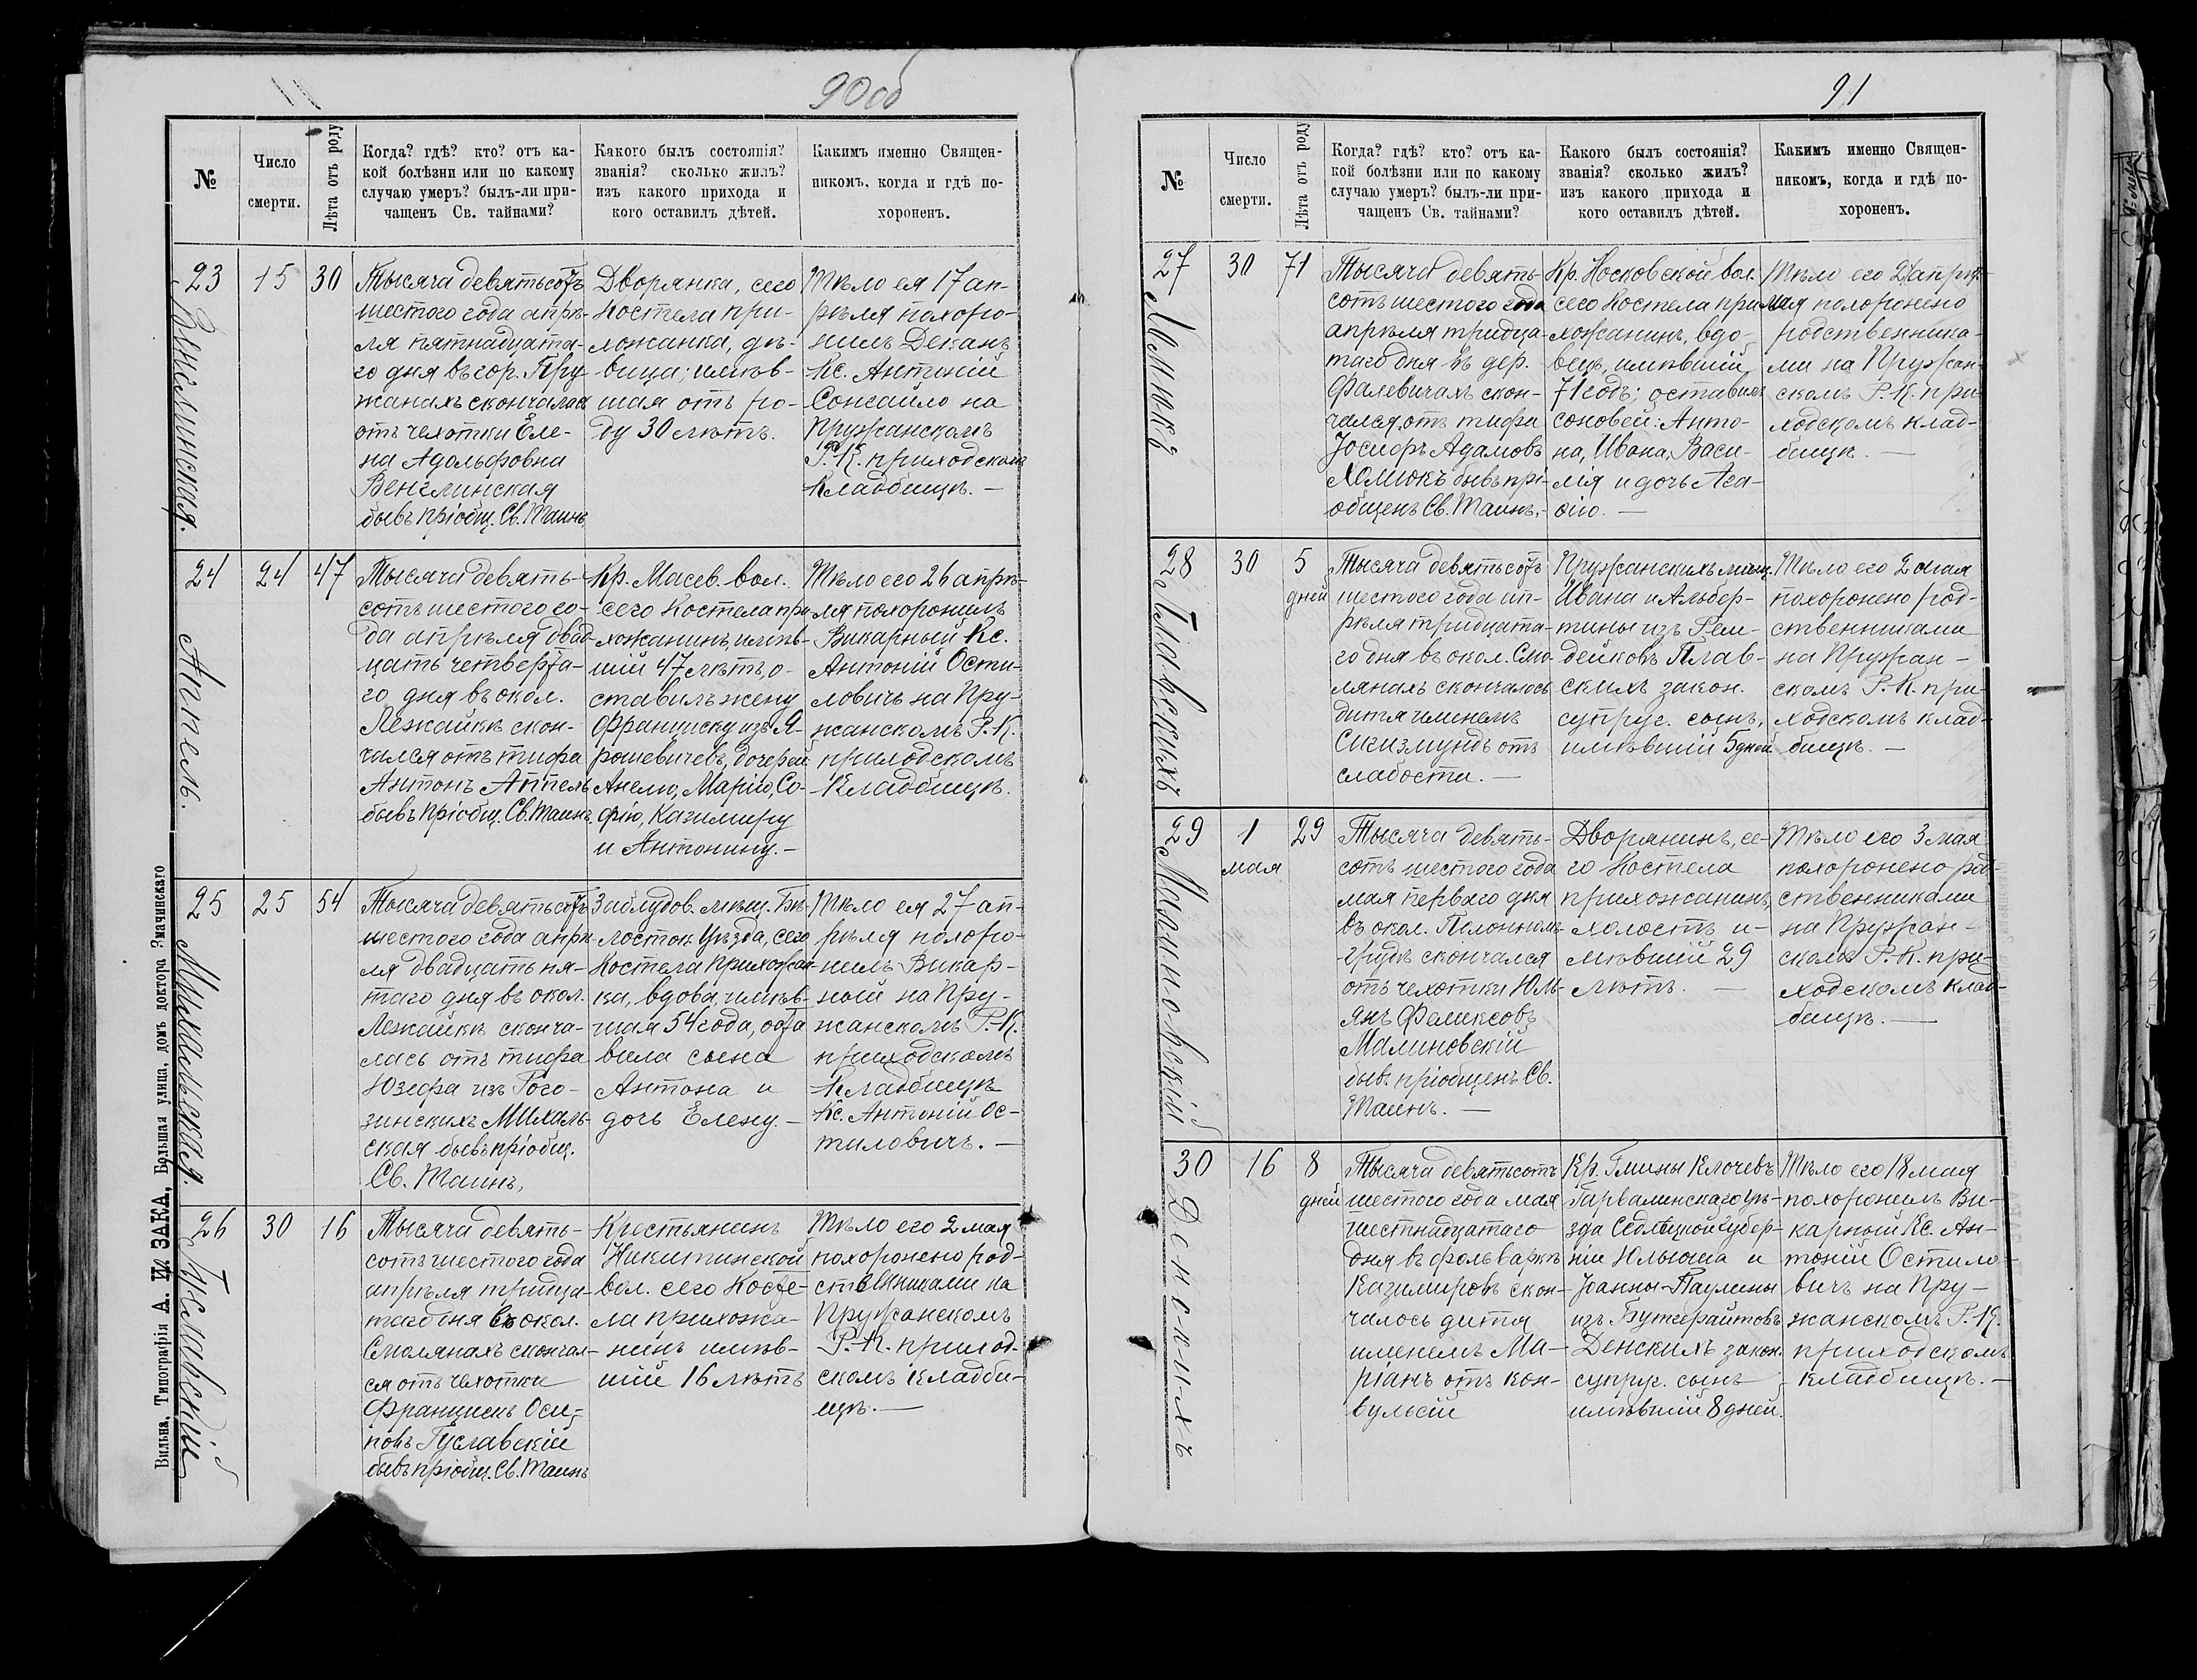 90об
№
Число
смерти.
Лѣта отъ роду
Когда? гдѣ? кто? отъ ка-
кой болѣзни или по какому
случаю умеръ? былъ-ли при-
чащенъ Св. тайнами?
Какого былъ состоянія?
званія? сколько жилъ?
изъ какого прихода и
кого оставилъ дѣтей.
Какимъ именно Священ-
никомъ, когда и гдѣ по-
хороненъ.
23
Венглинская.
15
30
Тысяча девятьсотъ
шестого года апрѣ-
ля пятнадцата-
го дня въ гор. Пру-
жанахъ скончалась
отъ чехотки Еле-
на Адольфовна
Венглинская
бывъ пріобщ. Св. Таинъ
Дворянка, сего
Костела при-
хожанка, дѣ-
вица; имѣв-
шая отъ ро-
ду 30 лѣтъ.
Тѣло ея 17 ап-
рѣля похоро-
нилъ Деканъ
Кс. Антоній
Сонгайло на
Пружанскомъ
Р. К. приходскомъ
кладбищѣ. —
24
Аппель.
24
47
Тысяча девять-
сотъ шестого го-
да апрѣля двад-
цать четверта-
го дня въ окол.
Лежайкѣ скон-
чался отъ тифа
Антонъ Аппель
бывъ пріобщ. Св. Таинъ.
Кр. Масев. вол.
сего Костела при-
хожанинъ, имѣв-
шій 47 лѣтъ, о-
ставилъ жену
Франциску изъ Я-
рошевичевъ, дочерей:
Анелю, Марію, Со-
фію, Казимиру
и Антонину. —
Тѣло его 26 апрѣ-
ля похоронилъ
Викарный Кс.
Антоній Ости-
ловичъ на Пру-
жанскомъ Р. К.
приходскомъ
кладбищѣ.
25
Михальская.
25
54
Тысяча девятьсотъ
шестого года апрѣ-
ля двадцать пя-
таго дня въ окол.
Лежайкѣ сконча-
лась отъ тифа
Юзефа изъ Рого-
зинскихъ Михаль-
ская бывъ пріобщ.
Св. Таинъ,
Заблудов. мѣщ. Бѣ-
лосток. Уѣзда, сего
Костела прихожан-
ка, вдова, имѣв-
шая 54 года, оста-
вила сына
Антона и
дочь Елену. —
Тѣло ея 27 ап-
рѣля похоро-
нилъ Викар-
ный на Пру-
жанскомъ Р.-К.
приходскомъ
кладбищѣ
Кс. Антоній Ос-
тиловичъ. —
26
Гуславскій
30
16
Тысяча девять-
сотъ шестого года
апрѣля тридца-
таго дня въ окол.
Смолянахъ скончал-
ся отъ чехотки
Францискъ Оси-
повъ Гуславскій
бывъ пріобщ. Св. Таинъ
Крестьянинъ
Никитинской
вол. сего Косте-
ла прихожа-
нинъ имѣв-
шій 16 лѣтъ
Тѣло его 2 мая
похоронено род-
ственниками на
Пружанскомъ
Р.-К. приход-
скомъ кладби-
щѣ. —
Вильна, Типографія А. И. ЗАКА, Большая улица, домъ доктора Змачинскаго
91
№
Число
смерти.
Лѣта отъ роду
Когда? гдѣ? кто? отъ ка-
кой болѣзни или по какому
случаю умеръ? былъ-ли при-
чащенъ Св. тайнами?
Какого былъ состоянія?
званія? сколько жилъ?
изъ какого прихода и
кого оставилъ дѣтей.
Какимъ именно Священ-
никомъ, когда и гдѣ по-
хороненъ.
27
Хомюкъ
30
71
Тысяча девять-
сотъ шестого года
апрѣля тридца-
таго дня въ дер.
Фалевичахъ скон-
чался отъ тифа
Іосифъ Адамовъ
Хомюкъ бывъ прі-
общенъ Св. Таинъ. —
Кр. Носковской вол.
сего Костела при-
хожанинъ, вдо-
вецъ, имѣвшій
71 годъ; оставилъ
соновей: Анто-
на, Ивана, Васи-
лія и дочь Ага-
фію. —
Тѣло его
мая похоронено
родственника-
ми на Пружан-
скомъ Р. К. при-
ходскомъ клад-
бищѣ. —
28
Плавскихъ
30
5
дней
Тысяча девятьсотъ
шестого года ап-
рѣля тридцата-
го дня въ окол. Смо-
лянахъ скончалось
дитя именемъ
Сигизмундъ отъ
слабости. —
Пружанскихъ мѣщ.
Ивана и Альбер-
тины изъ Рем-
дейковъ Плав-
скихъ закон.
супруг. сынъ,
имѣвшій 5 дней
Тѣло его 2 мая
похоронено род-
ственниками
на Пружан-
скомъ Р. К. при-
ходскомъ клад-
бищѣ. —
29
Малиновскій
1
мая
29
Тысяча девять-
сотъ шестого года
мая перваго дня
въ окол.
скончался
отъ чехотки Юль-
янъ Феликсовъ
Малиновскій
бывъ пріобщенъ Св.
Таинъ. —
Дворянинъ, се-
го Костела
прихожанинъ,
холостъ и-
мѣвшій 29
лѣтъ. —
Тѣло его 3 мая
похоронено род-
ственниками
на Пружан-
скомъ Р.-К. при-
ходскомъ клад-
бищѣ. —
30
Денскихъ
16
8
дней
Тысяча девятьсотъ
шестого года мая
шестнадцатаго
дня въ фольваркѣ
Казимировѣ скон-
чалось дитя
именемъ Ма-
ріанъ отъ кон-
вульсій
Кр. Гмины Клочевъ
Гарвалинскаго уѣ-
зда Сѣдлецкой губер-
ніи Юльюша и
Іоанны-Паулины
изъ Бутерайтовъ
Денскихъ закон.
супруг. сынъ
имѣвшій 8 дней.
Тѣло его 18 мая
похоронилъ Ви-
карный Кс. Ан-
тоній Остило-
вичъ на Пру-
жанскомъ Р.-К.
приходскомъ
кладбищѣ. —